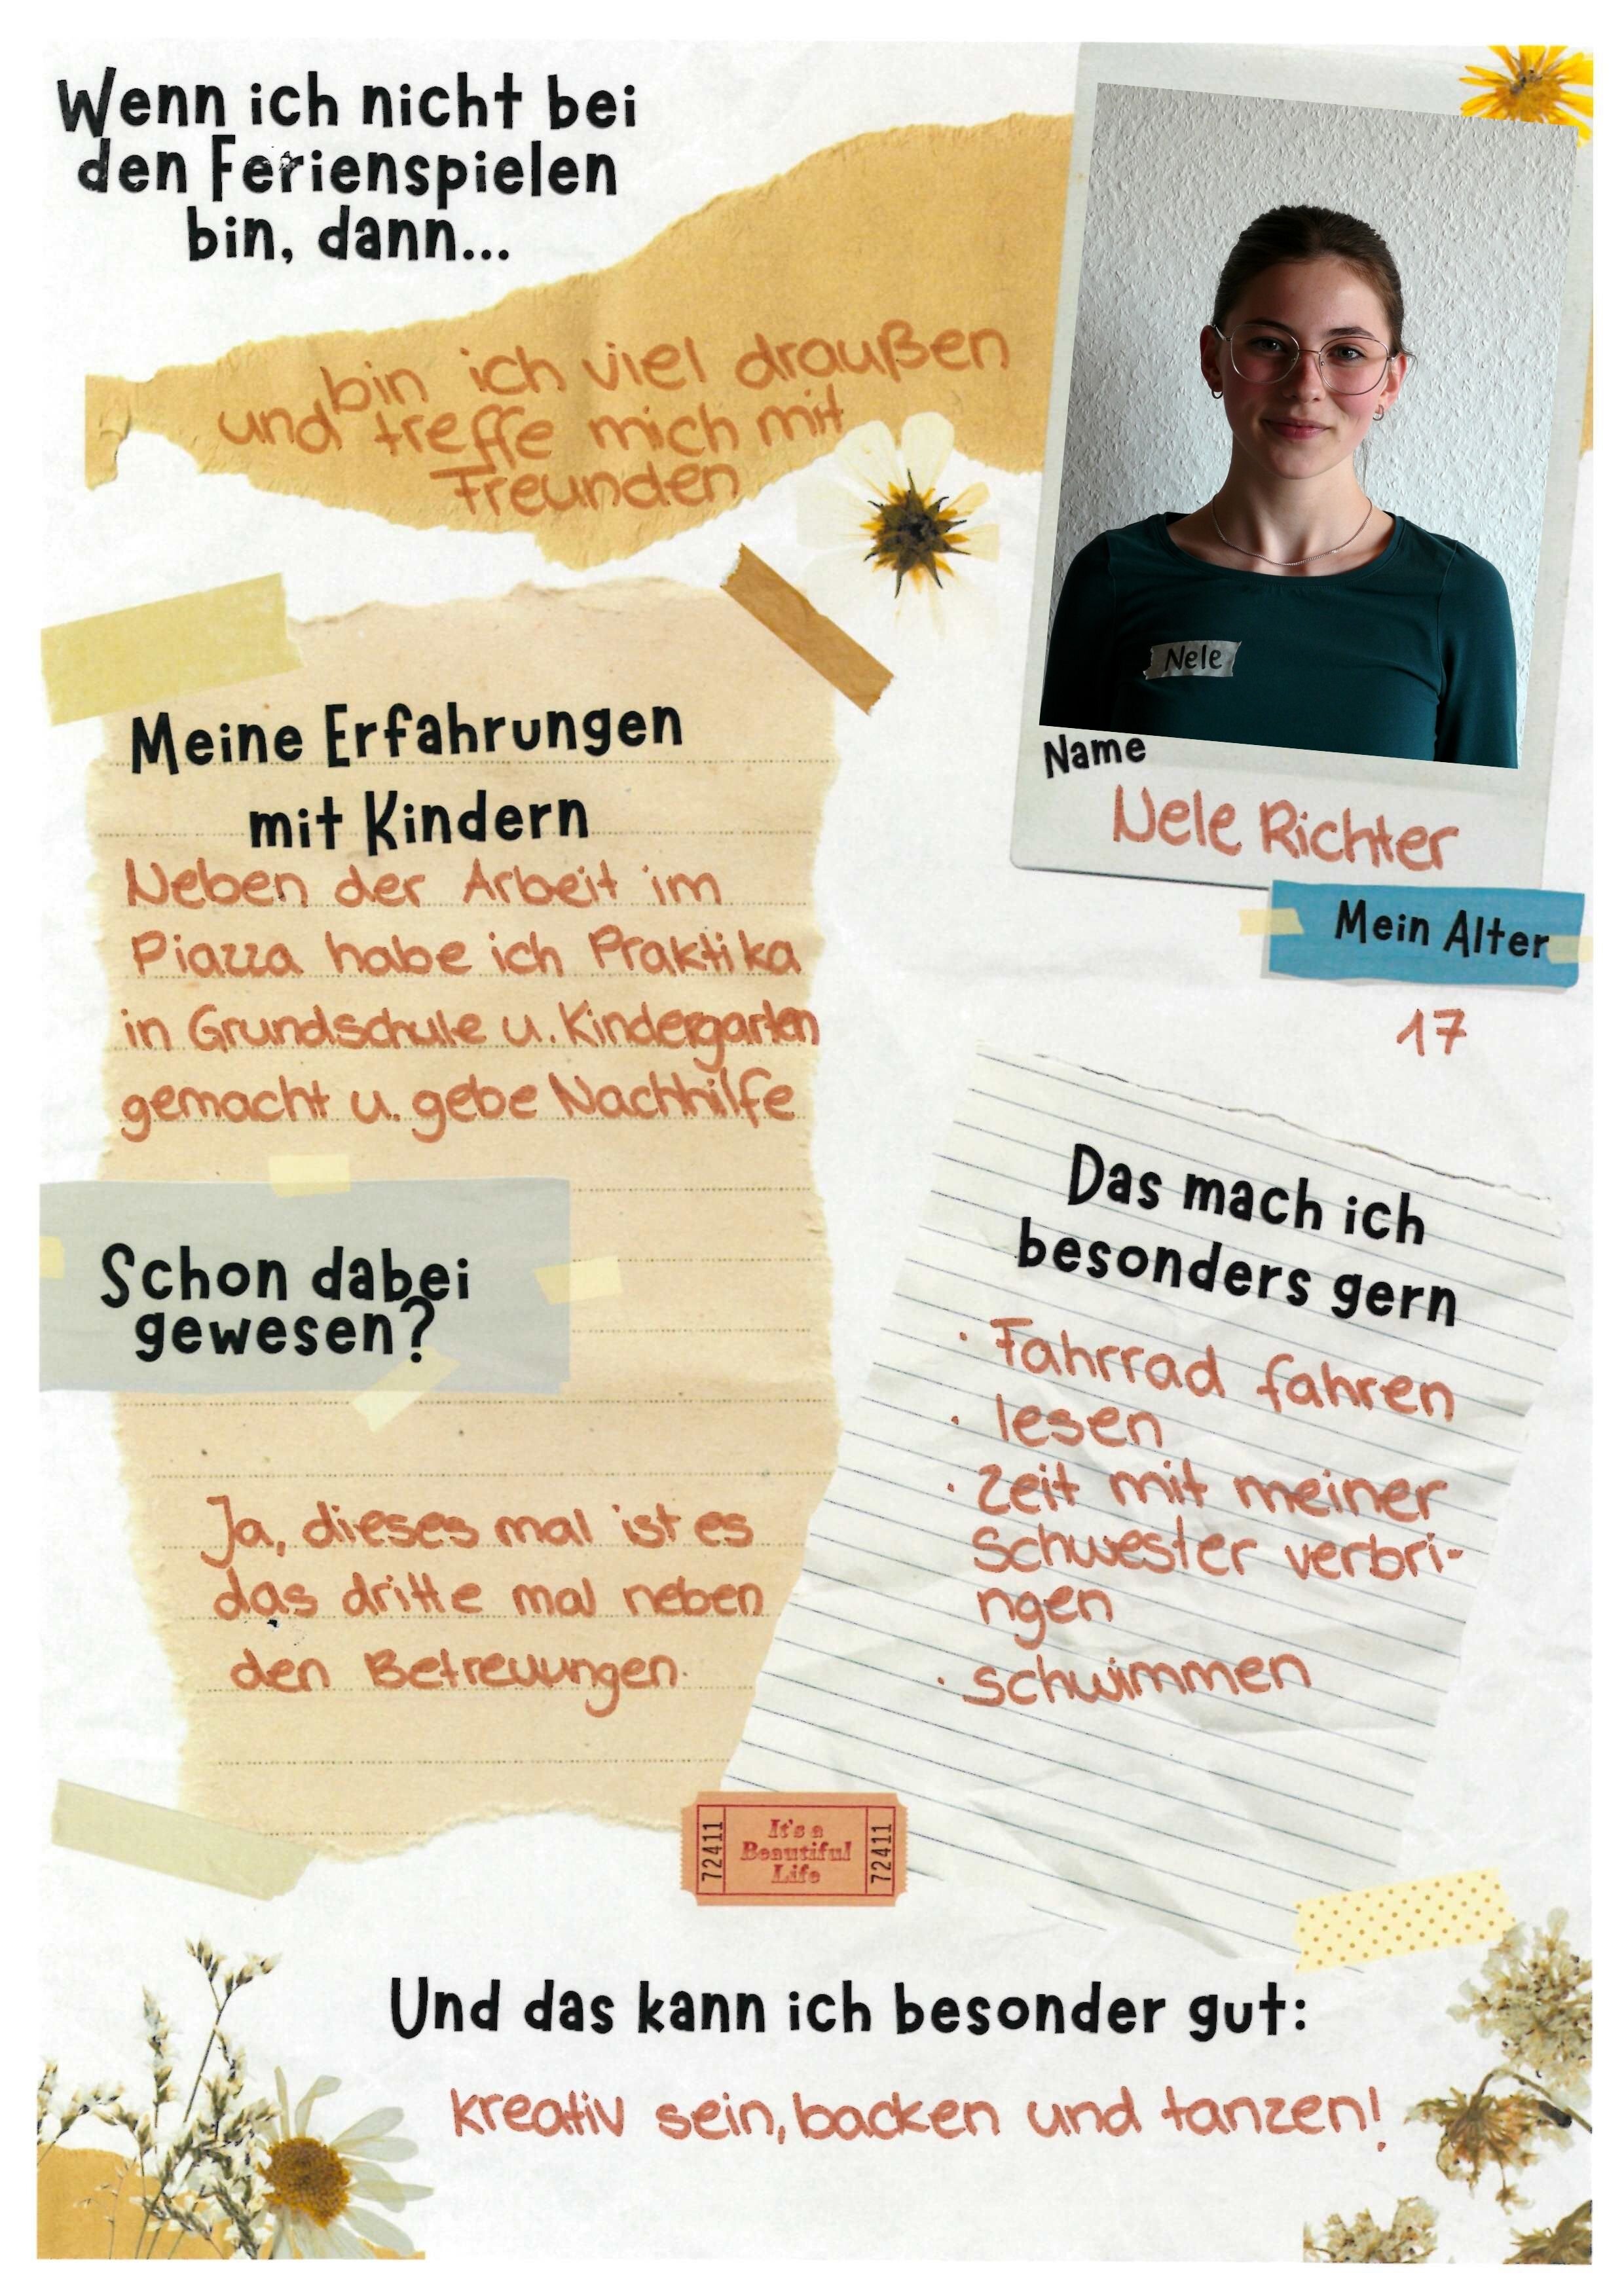 Wenn ich nicht bei
den Ferienspielen
bin, dann...
bin ich viel draußen
und treffe mich mit
Freunden
Nele
Name
Nele Richter
Mein Alter
17
Meine Erfahrungen
mit Kindern
Neben der Arbeit im
Piazza habe ich Praktika
in Grundschule u. Kindergarten
gemacht u. gebe Nachhilfe
Schon dabei
gewesen?
Ja, dieses mal ist es
das dritte mal neben
den Betreuungen.
Das mach ich
besonders gern
· Fahrrad fahren
· lesen
· Zeit mit meiner
Schwester verbri-
ngen
· schwimmen
72411
It's a
Beautiful
Life
72411
Und das kann ich besonder gut:
kreativ sein, backen und tanzen!